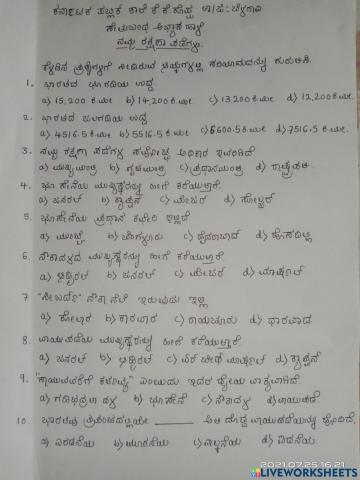 ಕರ್ನಾಟಕ ಪಬ್ಲಿಕ್ ಶಾಲೆ ಕೆ ಕೆ ಕೊಪ್ಪ ತಾ/ಜಿ: ಬೆಳಗಾವಿ
ಸೇತುಬಂಧ ಅಭ್ಯಾಸ ಹಾಳೆ
ನಮ್ಮ ರಕ್ಷಣಾ ಪಡೆಗಳು
ಕೆಳಗಿನ ಪ್ರಶ್ನೆಗಳಿಗೆ ನೀಡಿರುವ ಆಯ್ಕೆಗಳಲ್ಲಿ ಸರಿಯಾದುದನ್ನು ಗುರುತಿಸಿ.
1. ಭಾರತದ ಭೂಗಡಿಯ ಉದ್ದ
a) 15,200 ಕಿ.ಮೀ b) 14,200 ಕಿ.ಮೀ c) 13,200 ಕಿ.ಮೀ d) 12,200 ಕಿ.ಮೀ
2. ಭಾರತದ ಜಲಗಡಿಯ ಉದ್ದ
a) 4516.5 ಕಿ.ಮೀ b) 5516.5 ಕಿ.ಮೀ c) 6600.5 ಕಿ.ಮೀ d) 7516.5 ಕಿ.ಮೀ
3. ನಮ್ಮ ರಕ್ಷಣಾ ಪಡೆಗಳ ಸರ್ವೋಚ್ಚ ಅಧಿಕಾರ ಇವರಿಗಿದೆ
a) ಮುಖ್ಯಮಂತ್ರಿ b) ಗೃಹಮಂತ್ರಿ c) ಪ್ರಧಾನಮಂತ್ರಿ d) ರಾಷ್ಟ್ರಪತಿ
4. ಭೂಸೇನೆಯ ಮುಖ್ಯಸ್ಥರನ್ನು ಹೀಗೆ ಕರೆಯುತ್ತಾರೆ.
a) ಜನರಲ್ b) ಕ್ಯಾಪ್ಟನ್ c) ಮೇಜರ್ d) ಸೋಲ್ಜರ್
5. ಭೂಸೇನೆಯ ಪ್ರಧಾನ ಕಛೇರಿ ಇಲ್ಲಿದೆ
a) ಮುಂಬೈ b) ಬೆಂಗಳೂರು c) ಹೈದರಾಬಾದ್ d) ಹೊಸದಿಲ್ಲಿ
6. ನೌಕಾಪಡೆಯ ಮುಖ್ಯಸ್ಥರನ್ನು ಹೀಗೆ ಕರೆಯುತ್ತಾರೆ.
a) ಅಡ್ಮಿರಲ್ b) ಜನರಲ್ c) ಮೇಜರ್ d) ಮಾರ್ಷಲ್
7 "ಸೀಬರ್ಡ್" ನೌಕಾ ನೆಲೆ ಇರುವುದು ಇಲ್ಲಿ
a) ಕೋಲಾರ b) ಕಾರವಾರ c) ರಾಯಚೂರು d) ಧಾರವಾಡ
8. ವಾಯುಪಡೆಯ ಮುಖ್ಯಸ್ಥರನ್ನು ಹೀಗೆ ಕರೆಯುತ್ತಾರೆ.
a) ಜನರಲ್ b) ಅಡ್ಮಿರಲ್ c) ಏರ್ ಚೀಫ್ ಮಾರ್ಷಲ್ d) ಕ್ಯಾಪ್ಟನ್
9. ಎಂಬುದು ಇದರ ಧ್ಯೇಯ ವಾಕ್ಯವಾಗಿದೆ.
a) ಗಡಿಭದ್ರತಾ ಪಡೆ b) ಭೂಸೇನೆ c) ನೌಕಾಪಡೆ d) ವಾಯುಪಡೆ
10. ಭಾರತವು ಪ್ರಪಂಚದಲ್ಲಿಯೇ ________ ಅತಿ ದೊಡ್ಡ ವಾಯುಪಡೆಯನ್ನು ಹೊಂದಿದೆ.
a) ಎರಡನೆಯ b) ಮೂರನೆಯ c) ನಾಲ್ಕನೆಯ d) ಐದನೆಯ.
2021.07.25 16:21
LIVEWORKSHEETS